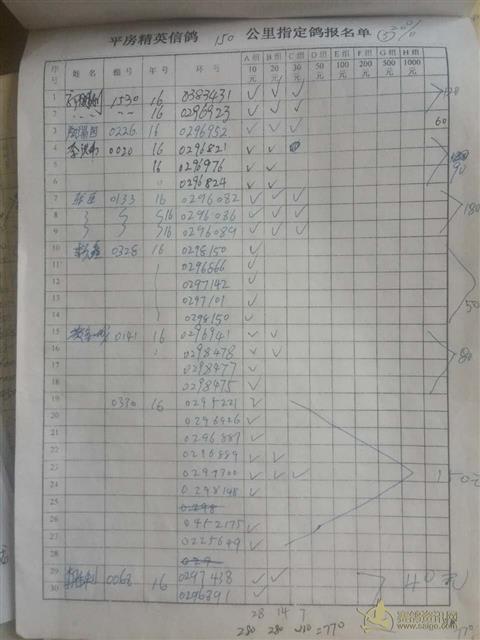 平房精英信鸽 150 公里指定鸽报名单 20%
序号 姓名 棚号 年号 环号 A组10元 B组20元 C组30元 D组50元 E组100元 F组200元 G组500元 H组1000元
1 1530 16 0383431 ✓ ✓ ✓ 120
2 16 0296923 ✓ ✓ ✓
3 0226 16 0296952 ✓ ✓ ✓ 60
4 0020 16 0296821 ✓ ✓
5 16 0296976 ✓ ✓ 90
6 0296824 ✓ ✓
7 0133 16 0296082 ✓ ✓ ✓
8 16 0296036 ✓ ✓ ✓ 180
9 16 0296089 ✓ ✓ ✓
10 0328 16 0298150 ✓
11 0296566 ✓
12 0297142 ✓
13 0297101 ✓ 50
14 0298150 ✓
15 0141 16 0296941 ✓ ✓
16 0298478 ✓ ✓ 80
17 0298477 ✓
18 0298475 ✓
19 0330 16 0295221 ✓
20 0296926 ✓
21 0296887 ✓
22 0296889 ✓ ✓
23 0297700 ✓ ✓ ✓ 150元
24 0298148 ✓
25
26 0452175 ✓
27 0225649 ✓
28
29 0068 16 0297438 ✓ ✓
30 0296891 ✓ 40元
28 14 7
280 280 210 =770
赛鸽资讯网
www.saigo.com